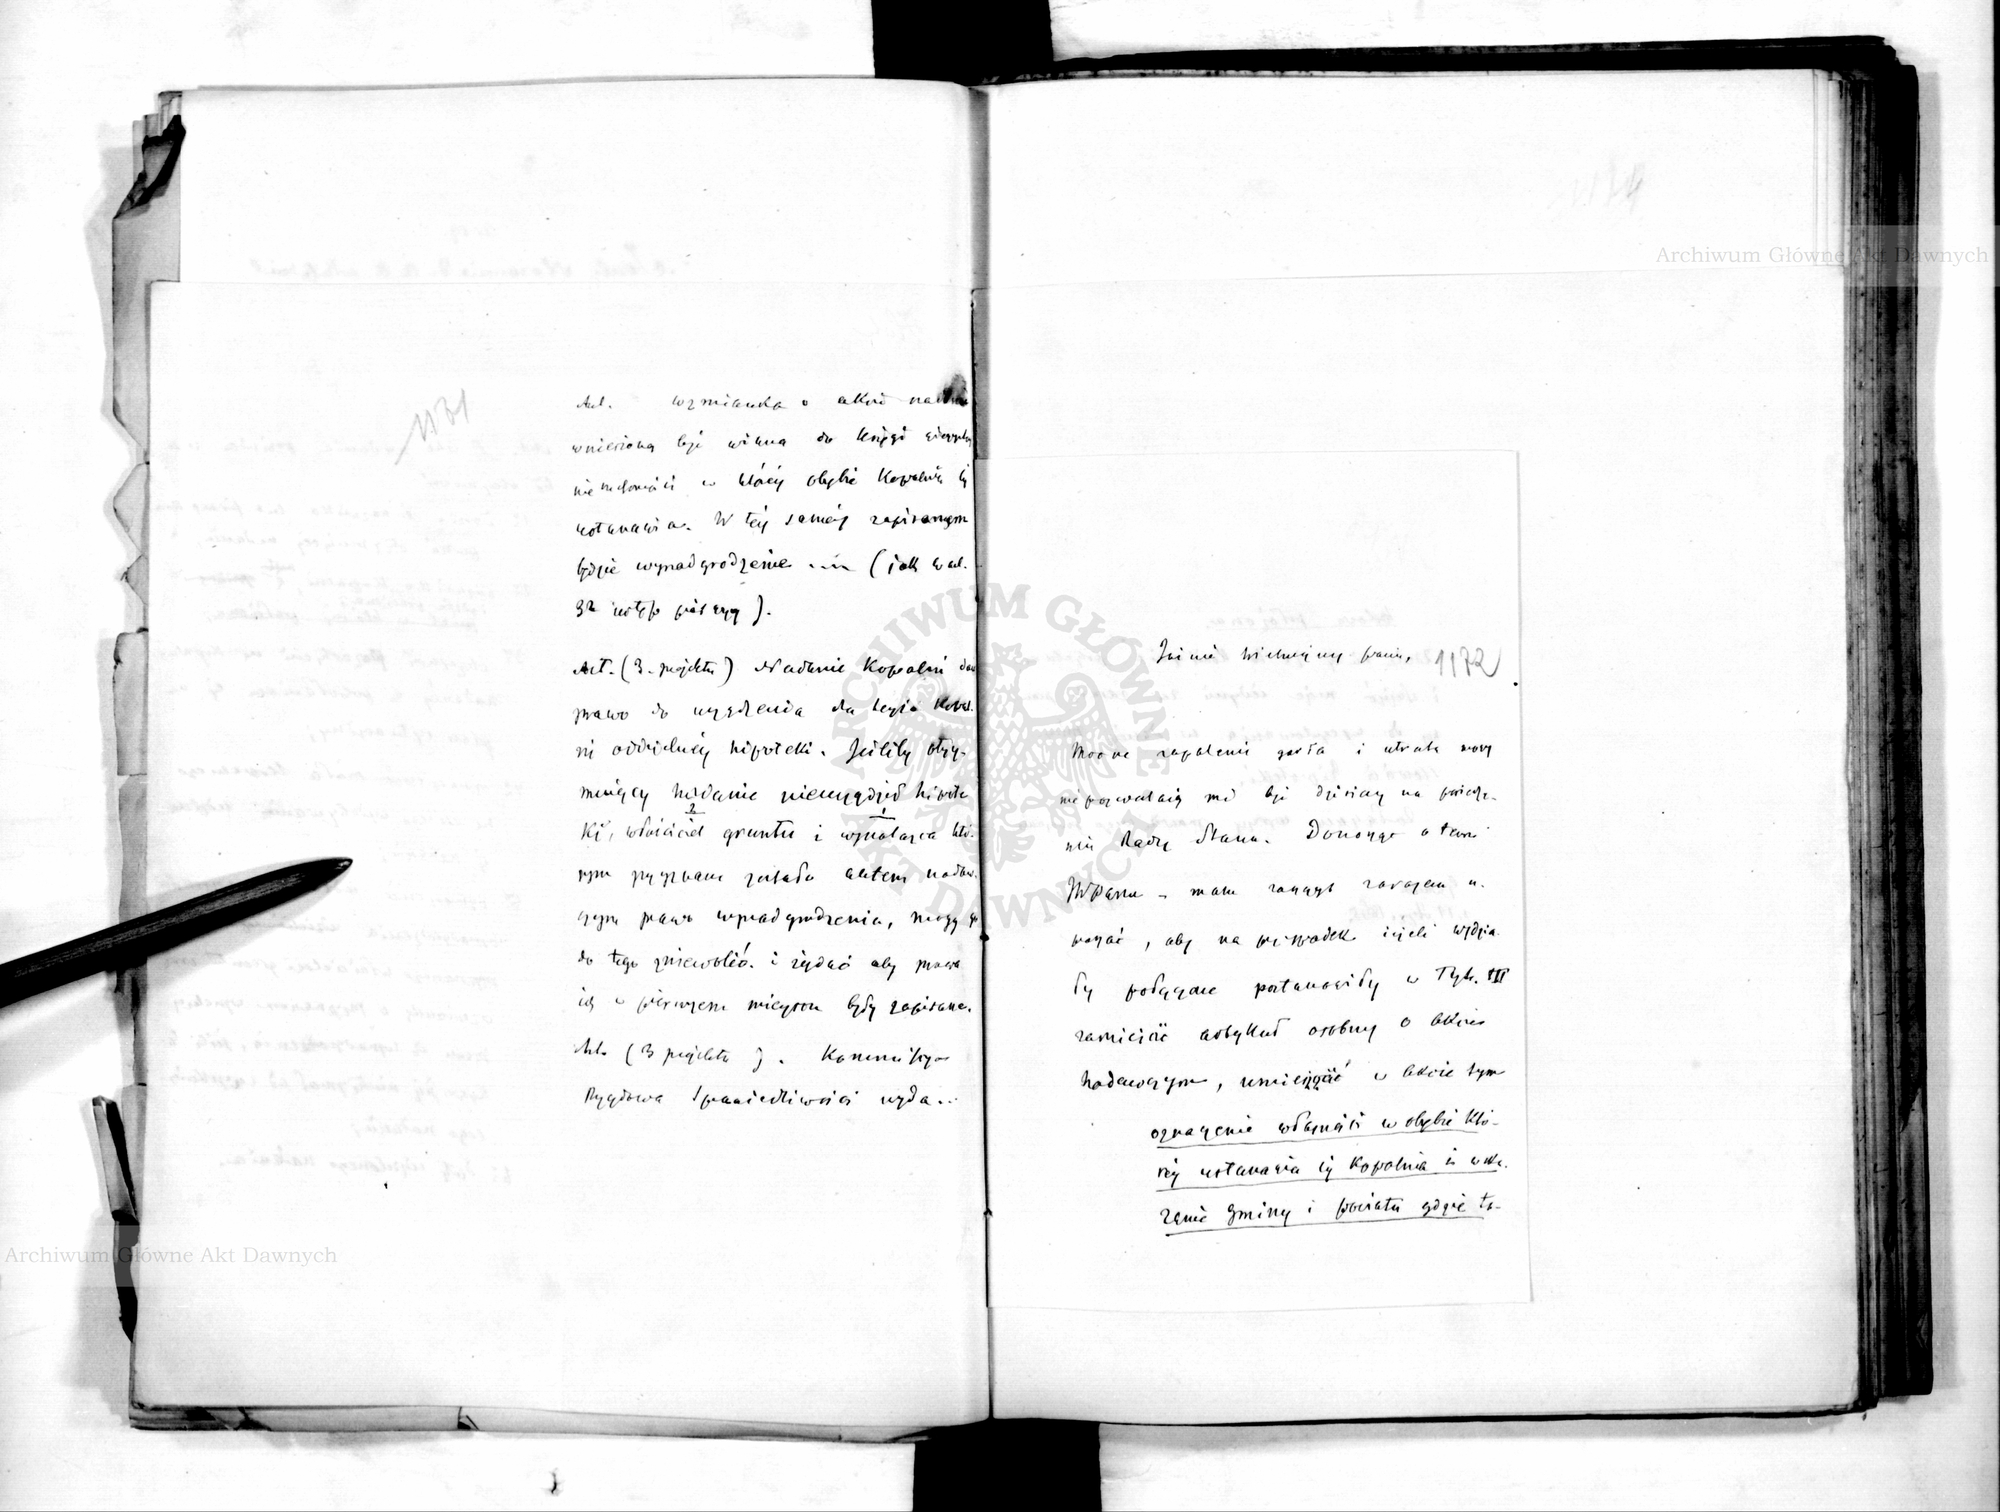 1171
Art. wzmianka o akcie nadania
wniesioną być winna do Księgi wieczystej
nieruchomości w którey obrębie Kopalnia się
ustanawia. W tey samey zapisanem
będzie wynadgrodzenie ... (jak w art.
32 ustęp pierwszy).
Art. (3. projektu) Nadanie Kopalni daie
prawo do urządzenia dla teyże Kopal-
ni oddzielnéy hipoteki. Jeśliby otrzy-
muiący Nadanie nieurządził hipote-
ki, właściciel gruntu i wynalazca któ-
rym przyznane zostało aktem nadaw-
czym prawo wynadgrodzenia, mogą go
do tego zniewolić i żądać aby prawa
ich w pierwszem mieyscu były zapisane.
Art. (3 projektu). Kommissya
Rządowa Sprawiedliwości wyda...
Jaśnie Wielmożny Panie, 1172
Mocne zapalenie gardła i utrata mowy
nie pozwalaią mi być dzisiay na posiedze-
niu Rady Stanu. Donosząc o tem
JWPanu – mam zaszczyt zarazem u-
praszać, aby na przypadek ieżeli wydzia-
ły połączone postanowiły w Tyt. III
zamieścić artykuł osobny o akcie
Nadawczym, umieścić w akcie tym
oznaczenie własności w obrębie któ-
réy ustanawia się Kopalnia i wska-
zanie gminy i powiatu gdzie ta-
Archiwum Główne Akt Dawnych
Archiwum Główne Akt Dawnych
ARCHIWUM GŁÓWNE AKT DAWNYCH